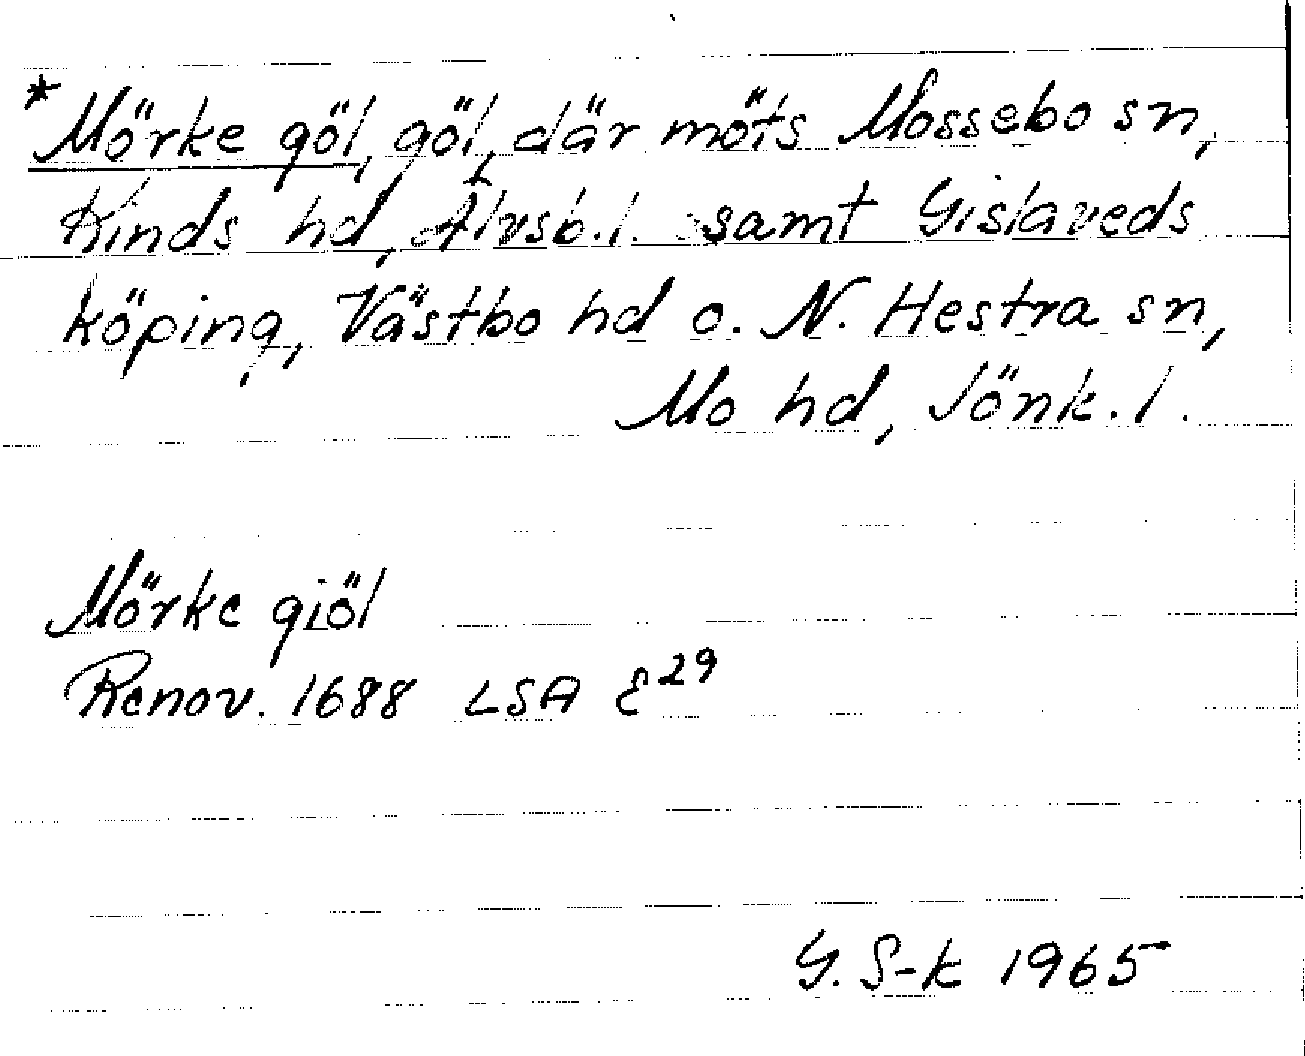 *Mörke göl, göl, där möts Mossebo sn,
Kinds hd, Älvsb.l. samt Gislaveds
köping, Västbo hd o. N. Hestra sn,
Mo hd, Jönk.l.
Mörke giöl
Renov. 1688 LSA E29
G. S-k 1965